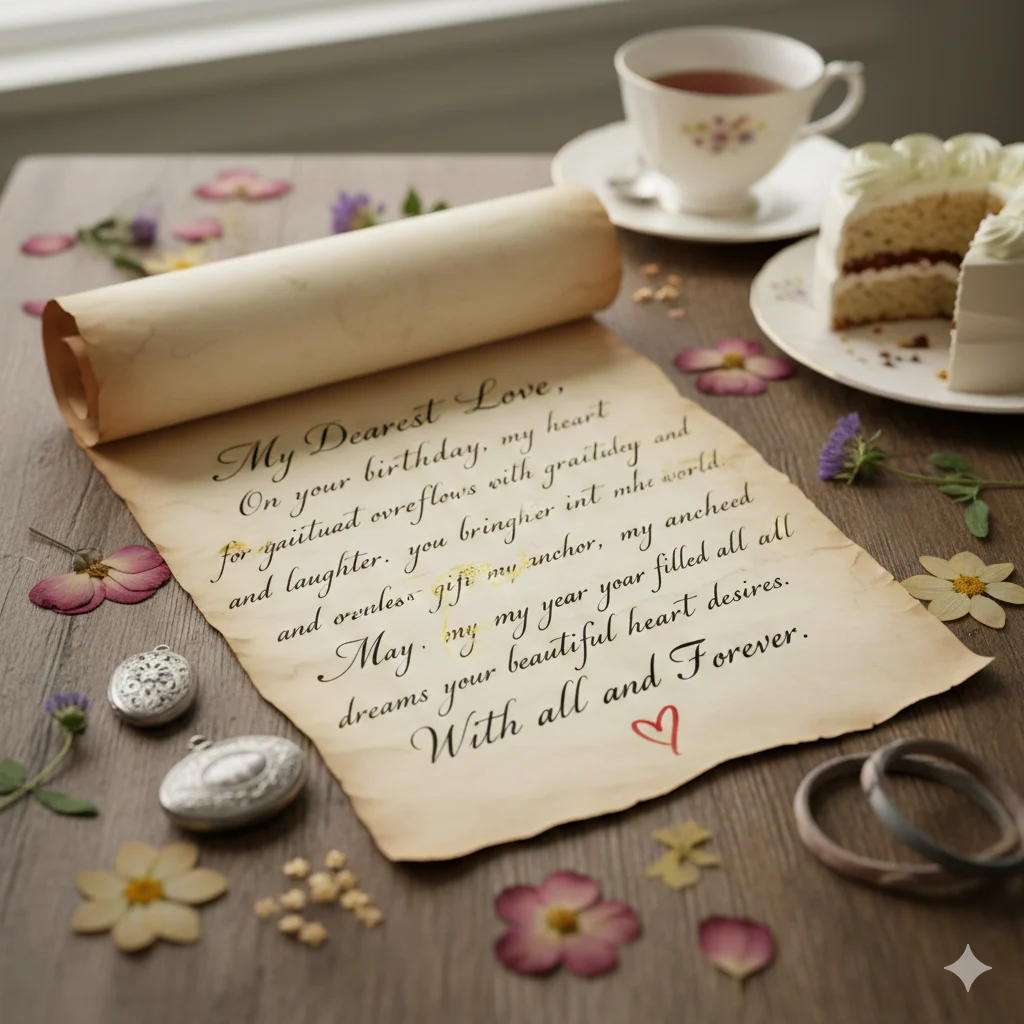 My Dearest Love,
On your birthday, my heart
for gaiituad ovreflows with graitidey and
and laughter. you bringher int mhe world.
and gift my anchor, my ancheed
May. my my year yoar filled all all
dreams your beautiful heart desires.
With all and Forever.